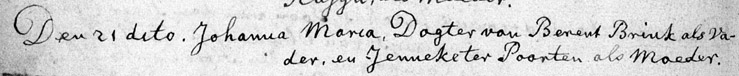 Den 21 dito. Johanna Maria, Dogter van Berent Brink als Va-
der, en Jenneketer Poorten als Moeder.